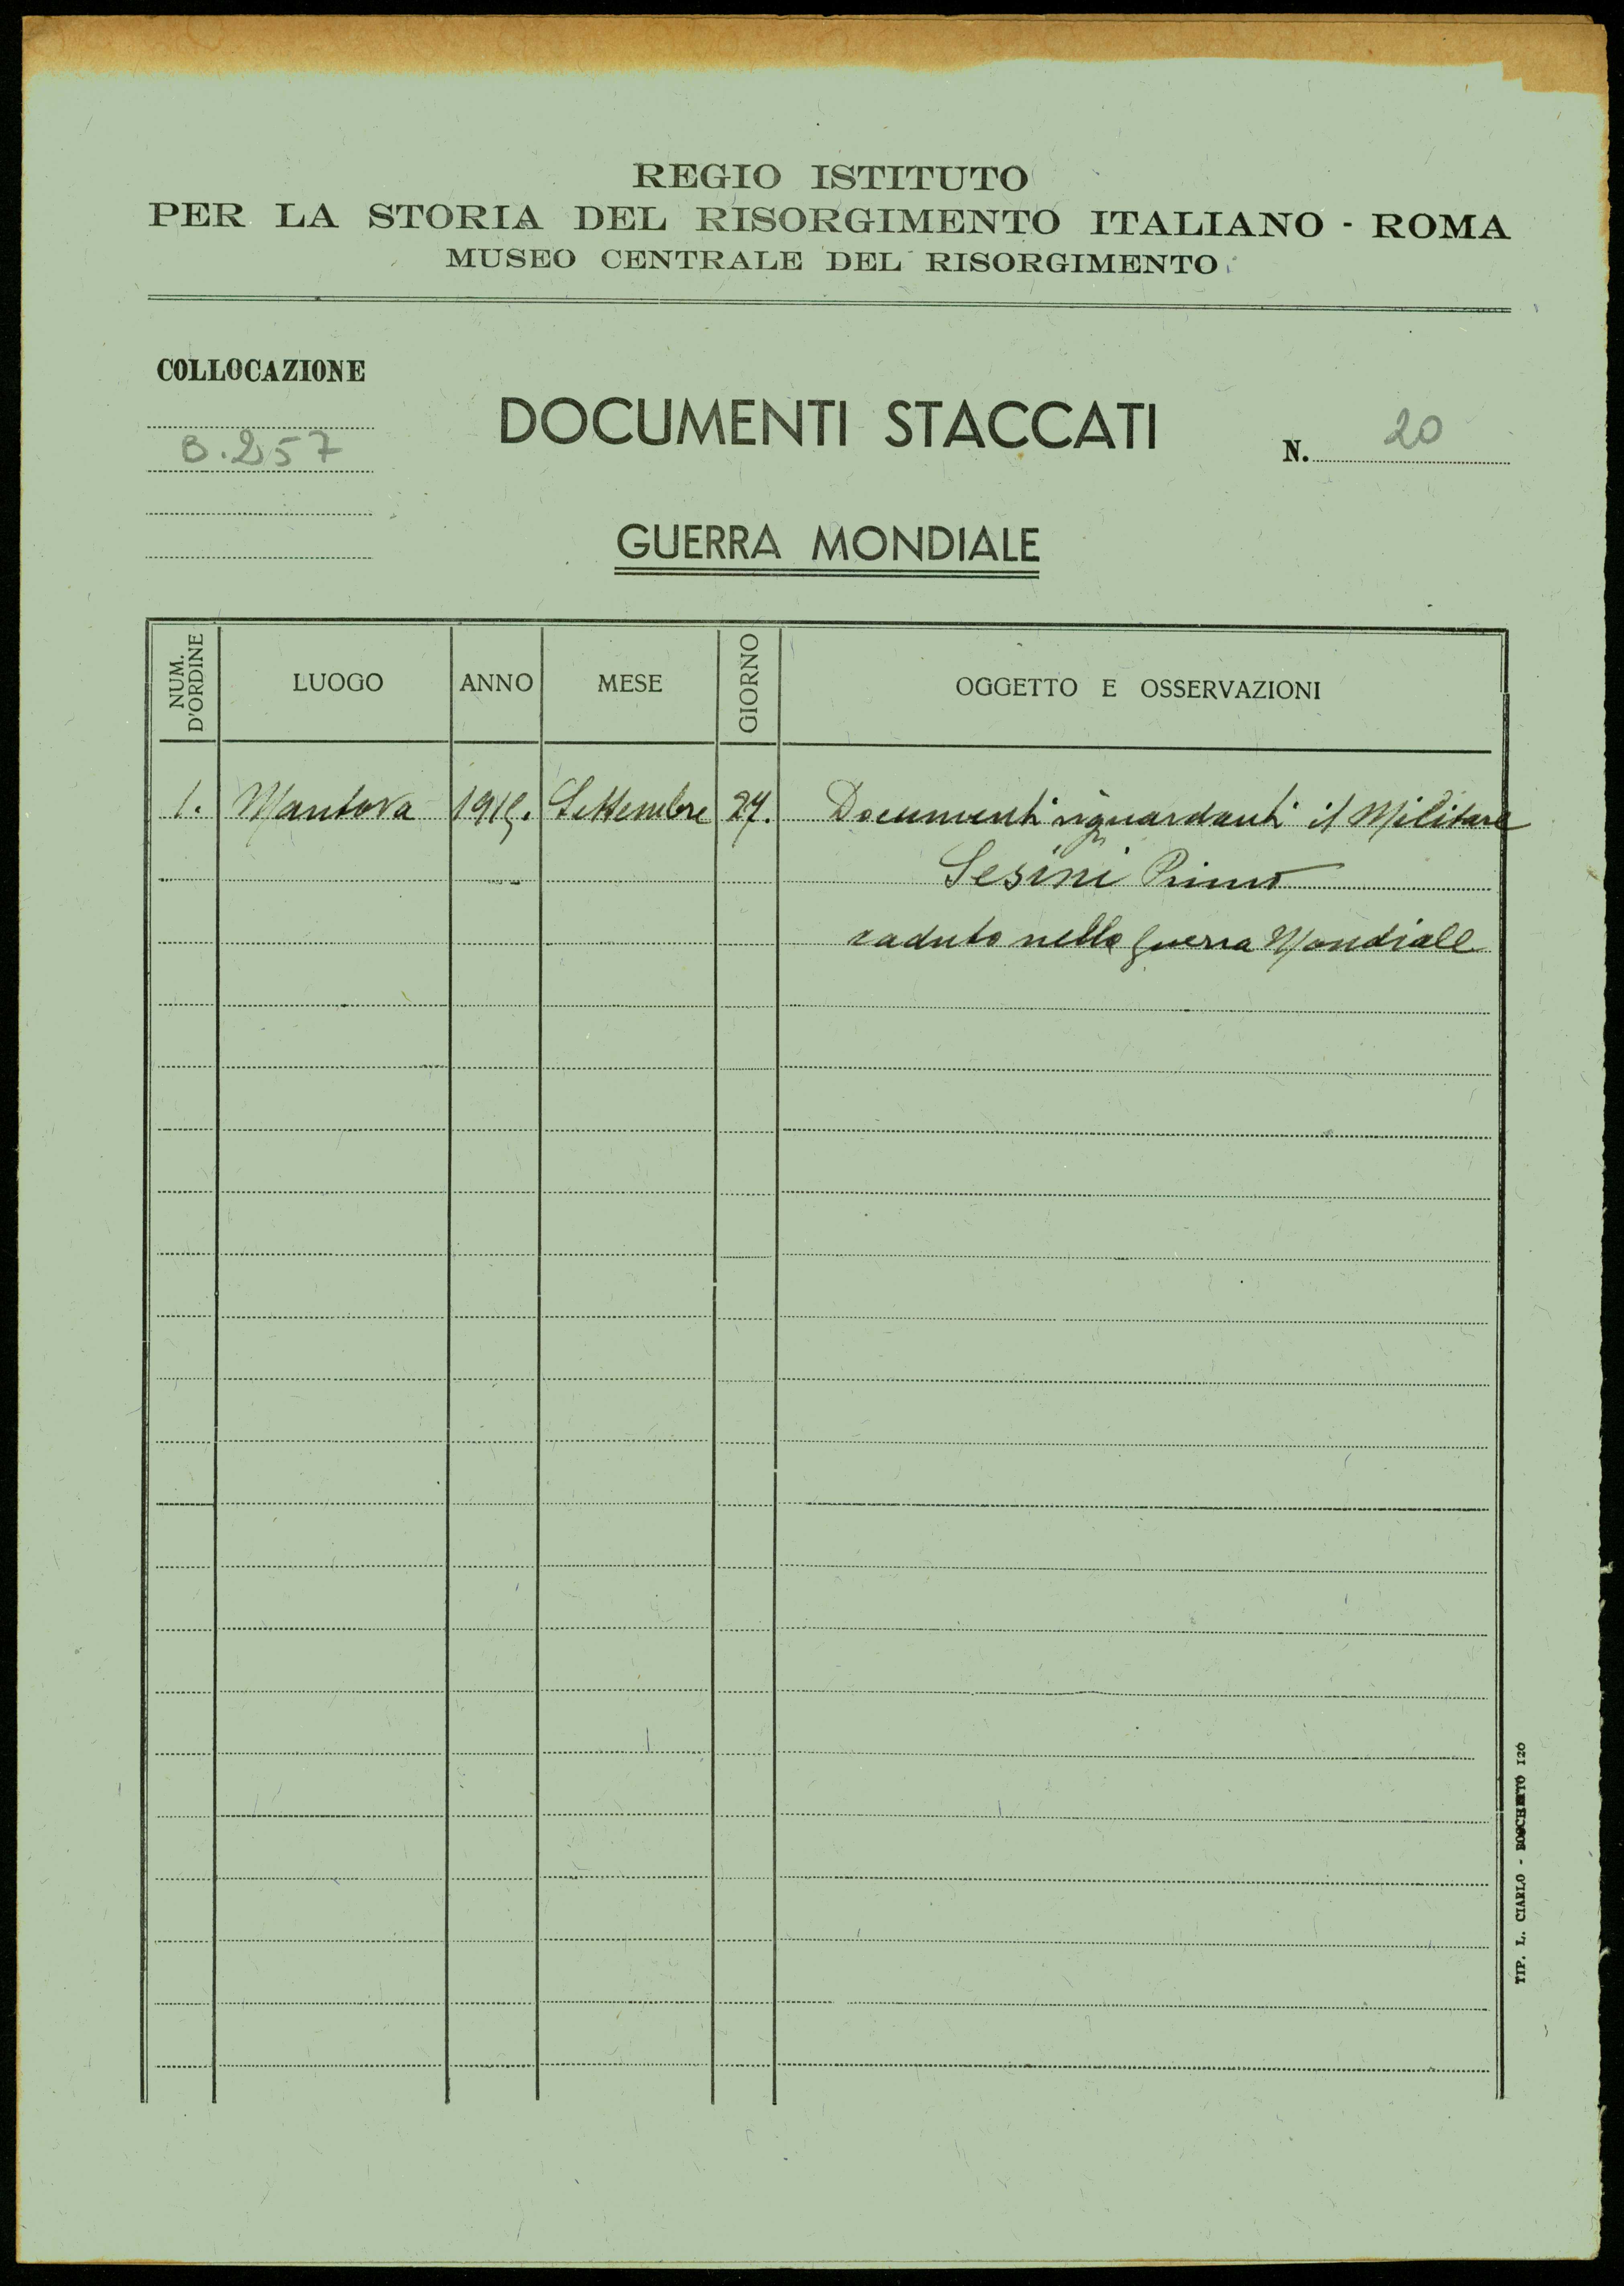 REGIO ISTITUTO
PER LA STORIA DEL RISORGIMENTO ITALIANO - ROMA
MUSEO CENTRALE DEL RISORGIMENTO
COLLOCAZIONE
B.257
DOCUMENTI STACCATI
N. 20
GUERRA MONDIALE
NUM. D'ORDINE LUOGO ANNO MESE GIORNO OGGETTO E OSSERVAZIONI
1. Mantova Settembre Documenti riguardanti il Militare
Sesini Primo
caduto nella guerra Mondiale
TIP. L. CIARLO - BOSCHETTO 120